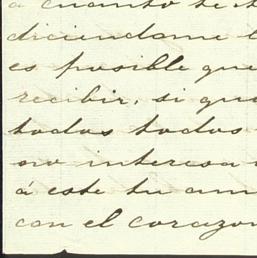 a cuanto te
diciendome
es posible que
recibir, si
todos todos
no interesa
á este tu
con el corazon